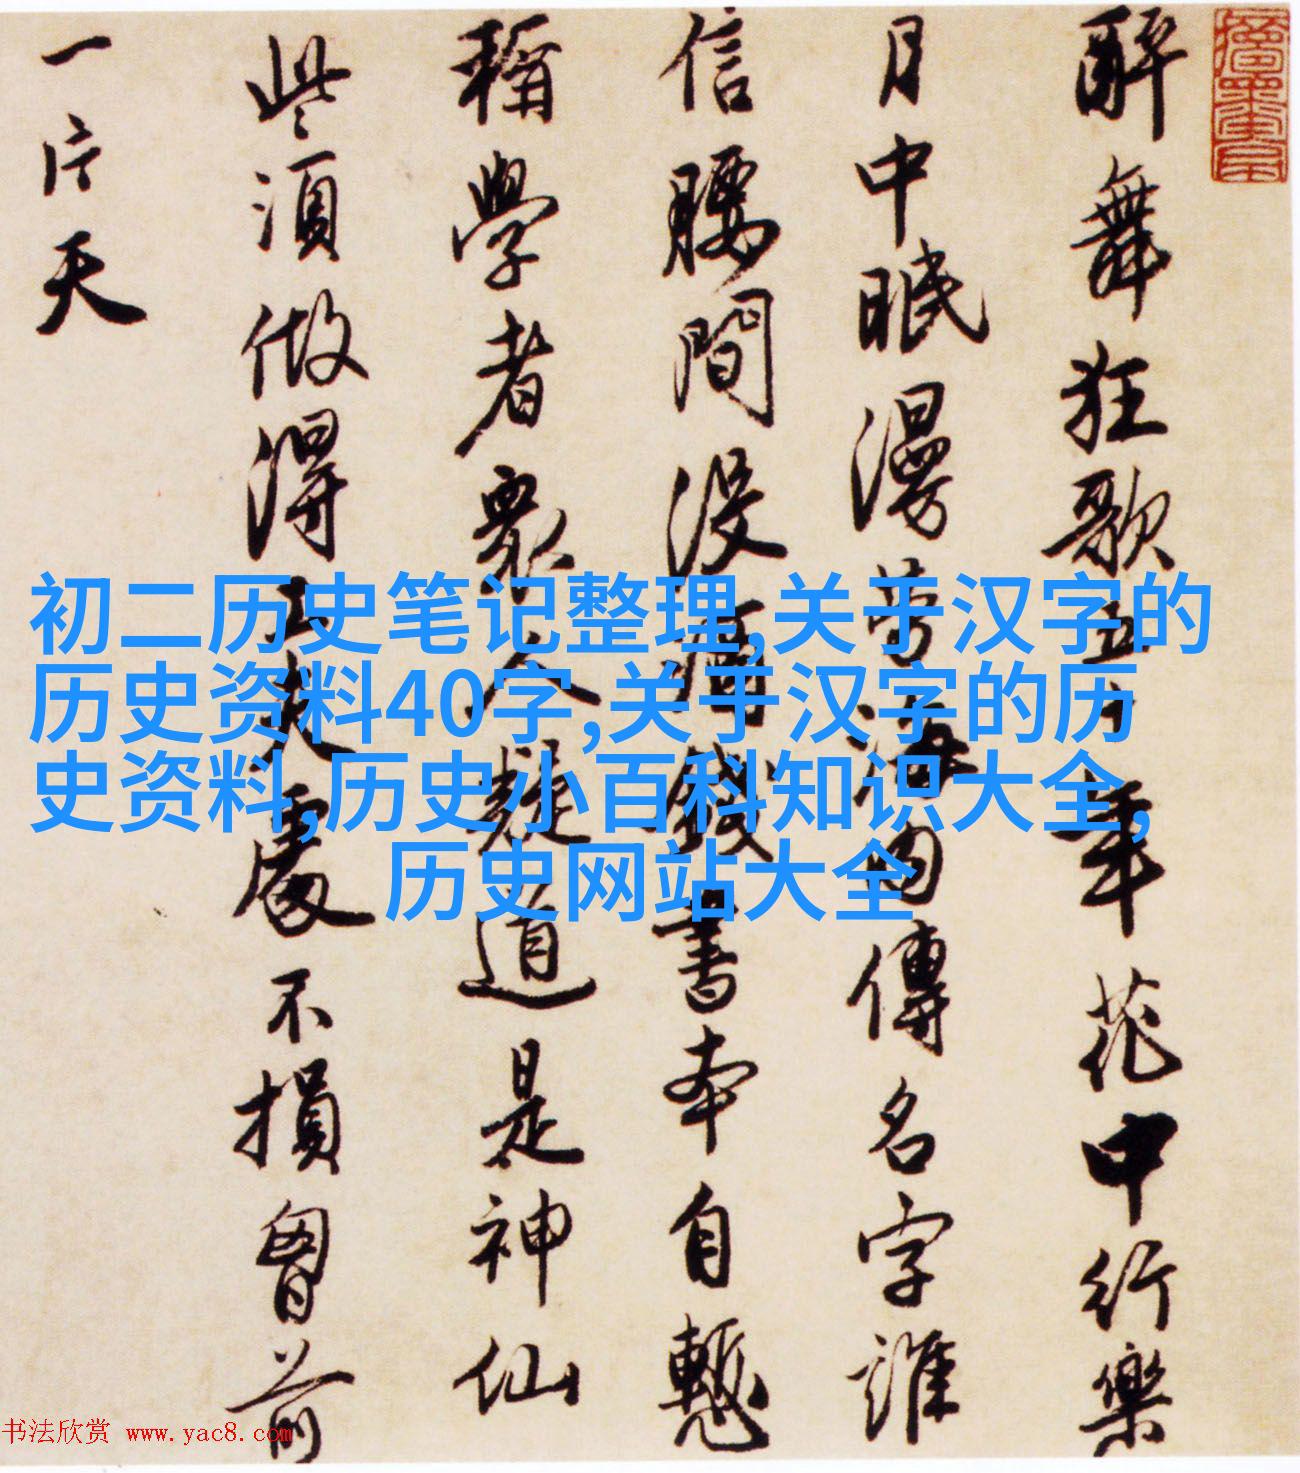 醉舞狂歌五十年花中行樂
月中眠漫勞海内傳名字誰
信腰間沒酒錢書本自慙
稱學者眾人疑道是神仙
些須做得工夫處不損胷前
一片天
初二历史笔记整理,关于汉字的
历史资料40字,关于汉字的历
史资料,历史小百科知识大全,
历史网站大全
书法欣赏 www.yac8.com